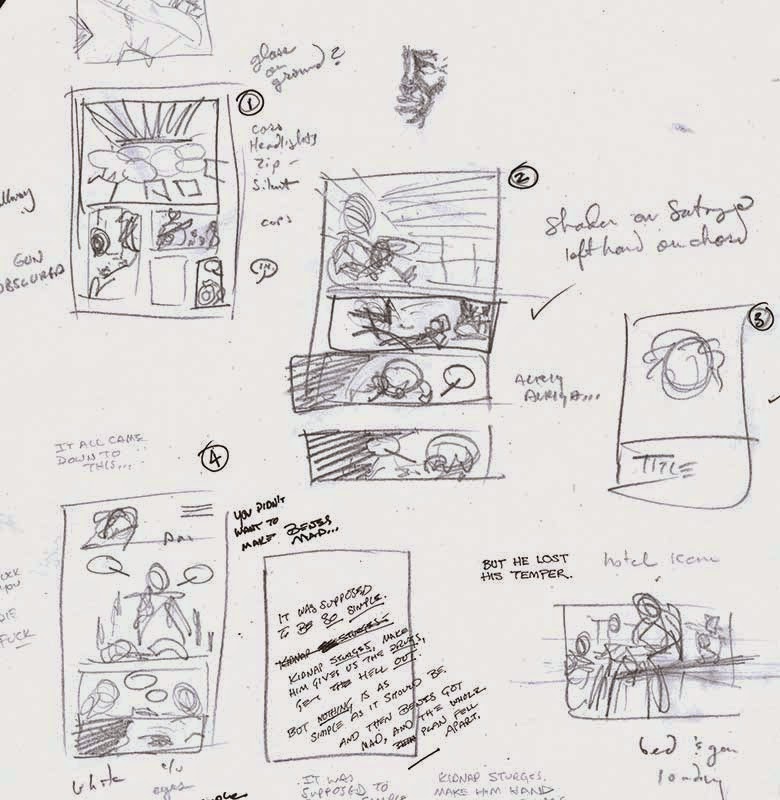 glass
on
ground?
1
cars
Headlights
Zip -
Silent
cars
GUN
OBSCURED
2
left hand on
3
TITLE
IT ALL CAME
DOWN TO
THIS...
4
YOU DIDN'T
WANT TO
MAKE BENES
MAD...
IT WAS SUPPOSED
TO BE SO SIMPLE.
KIDNAP STURGES
KIDNAP STURGES, MAKE
HIM GIVE US THE DRUGS,
GET THE HELL OUT.
BUT NOTHING IS AS
SIMPLE AS IT SHOULD BE.
AND THEN BENES GOT
MAD, AND THE WHOLE
PLAN FELL
APART.
BUT HE LOST
HIS TEMPER.
hotel room
YOU
DIE
FUCK
white
eyes
bed & gun
loading
IT WAS
SUPPOSED TO
KIDNAP STURGES.
MAKE HIM HAND